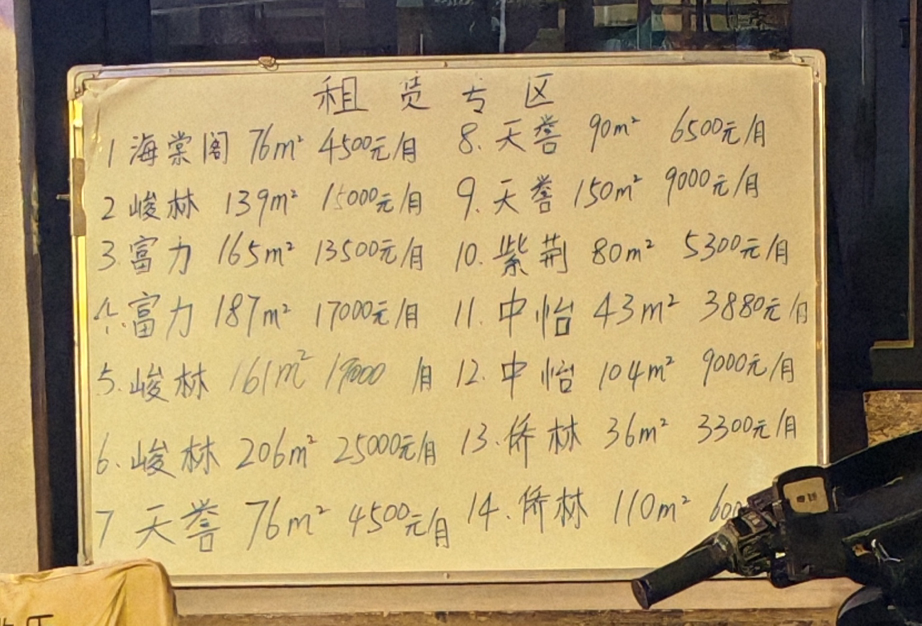 租赁专区
1 海棠阁 76m² 4500元/月
2 峻林 139m² 15000元/月
3. 富力 165m² 13500元/月
4. 富力 187m² 17000元/月
5. 峻林 161m² 19000 月
6. 峻林 206m² 25000元/月
7 天誉 76m² 4500元/月
8. 天誉 90m² 6500元/月
9. 天誉 150m² 9000元/月
10. 紫荆 80m² 5300元/月
11. 中怡 43m² 3880元/月
12. 中怡 104m² 9000元/月
13. 侨林 36m² 3300元/月
14. 侨林 110m²